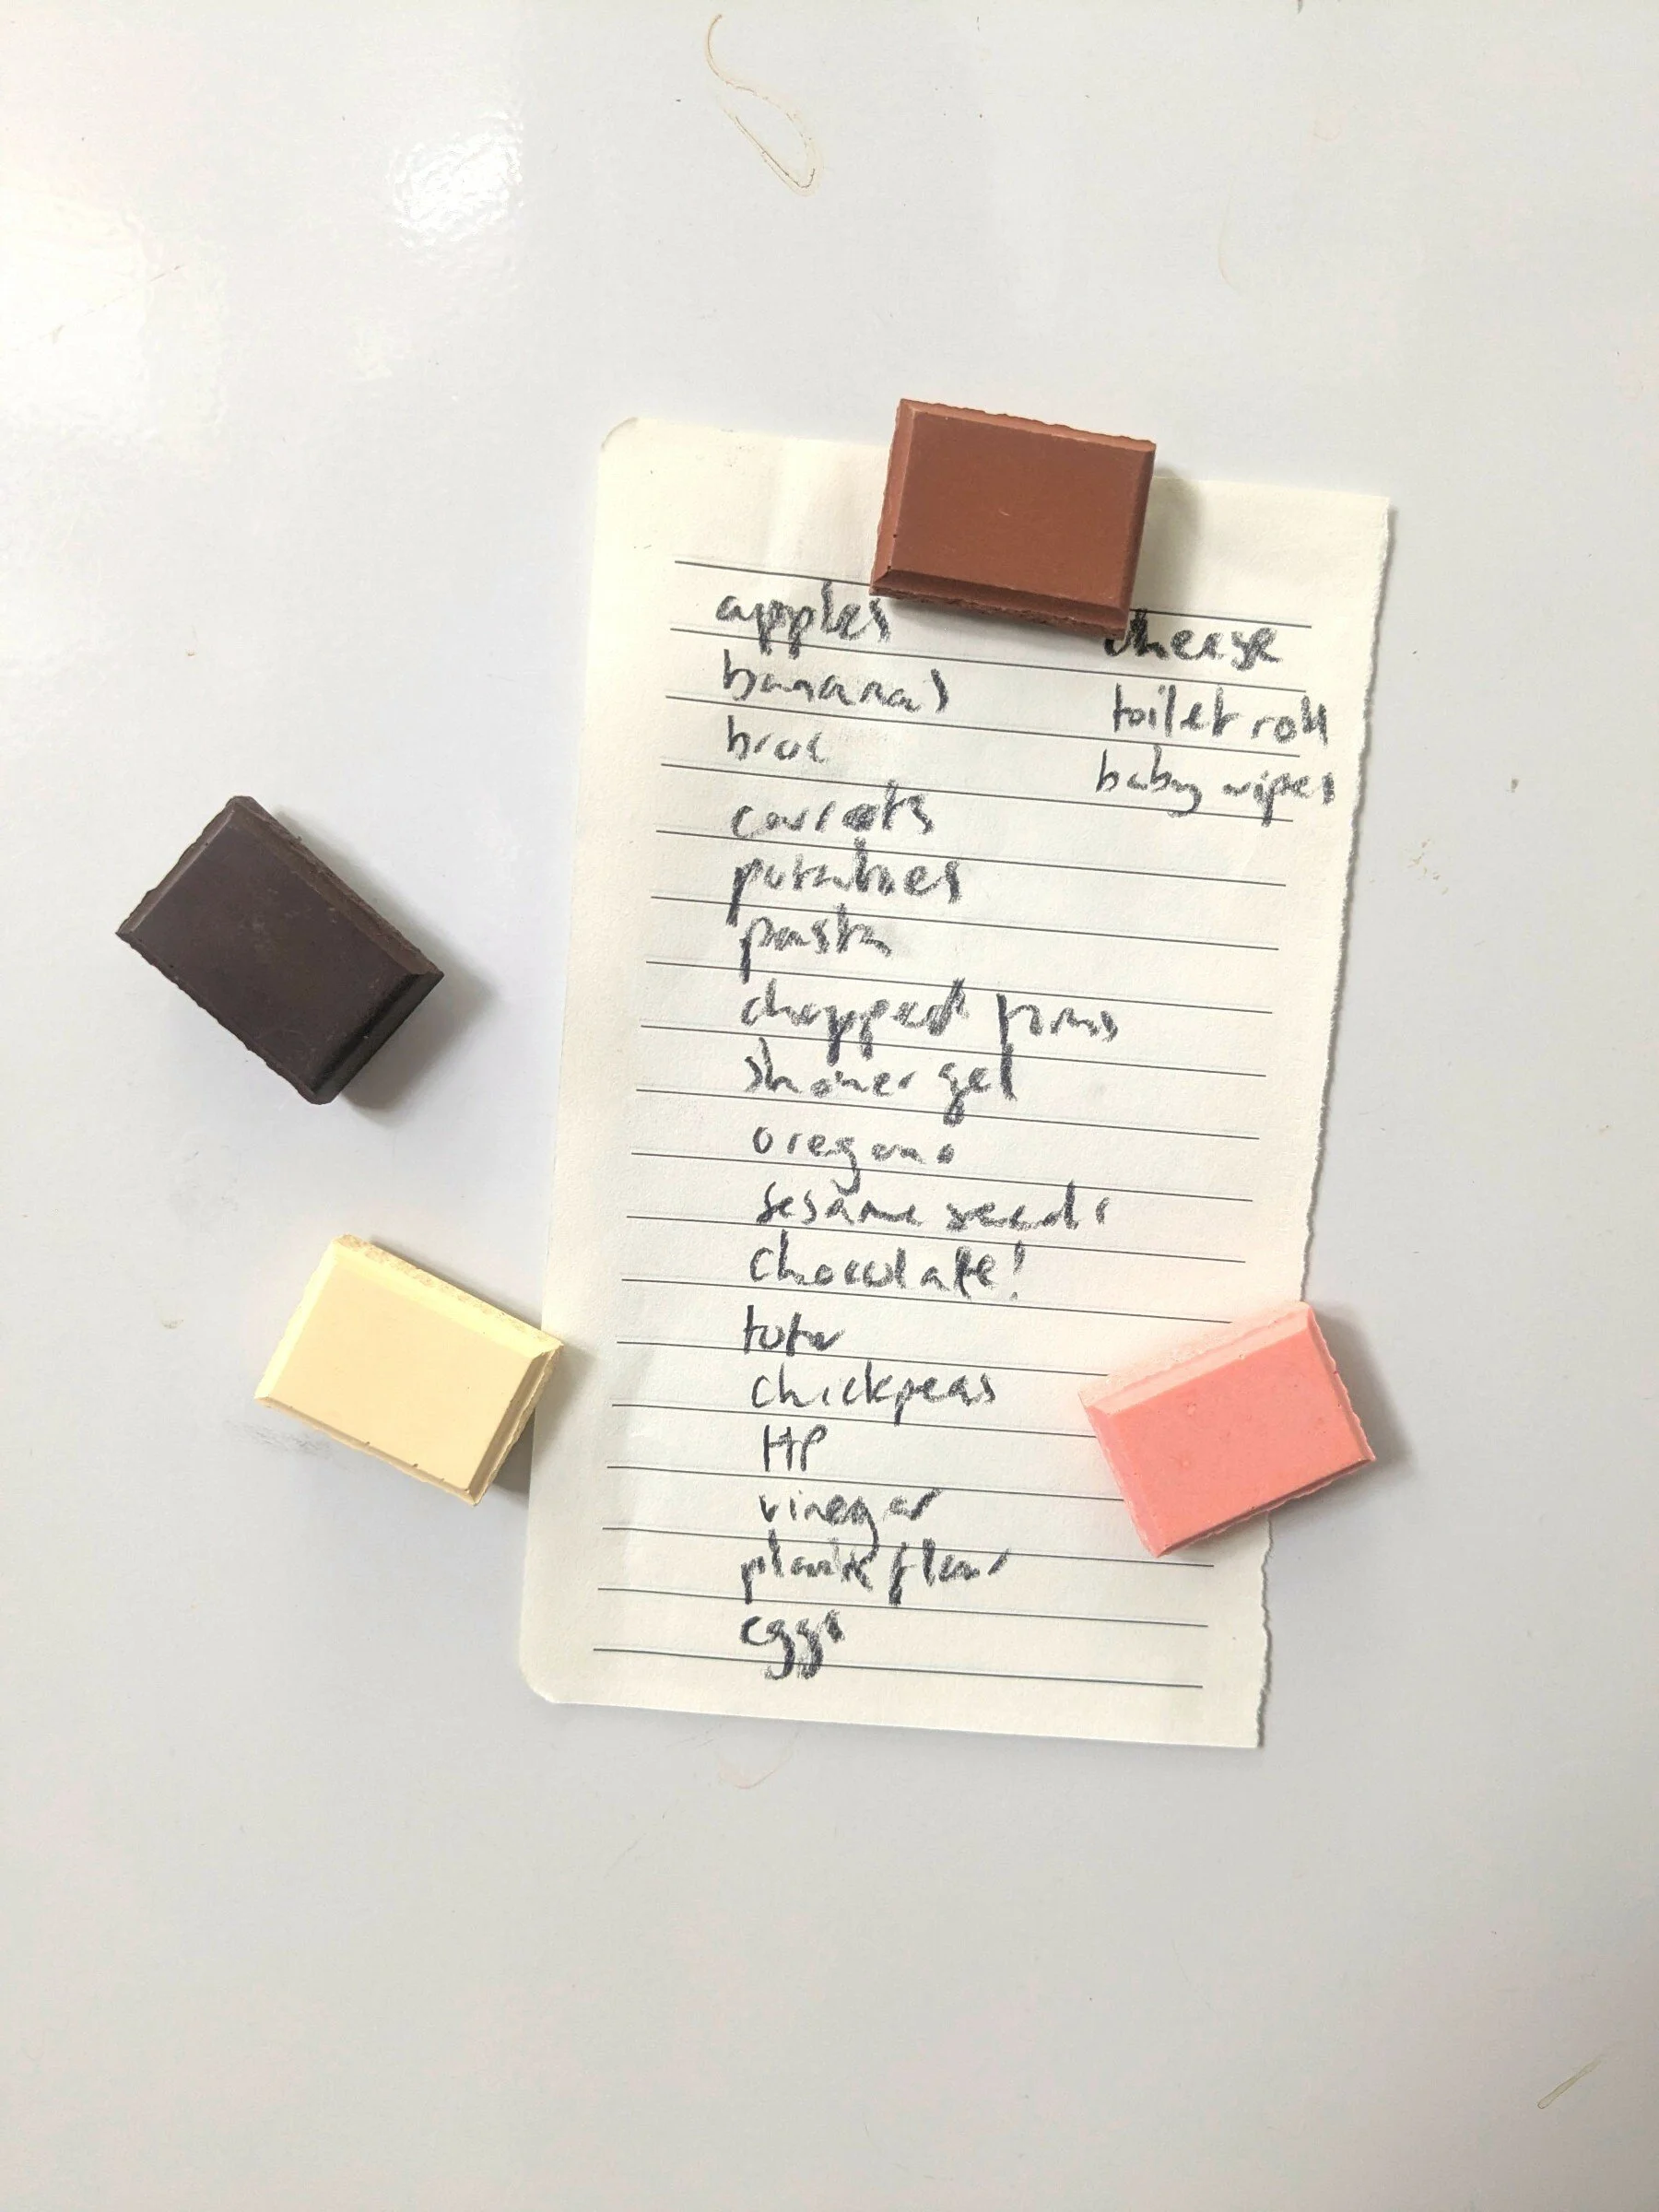 apples
bananas
broc
carrots
potatoes
pasta
chopped toms
shower gel
oregano
sesame seeds
chocolate!
tofu
chickpeas
HP
vinegar
plain flour
eggs
cheese
toilet roll
baby wipes